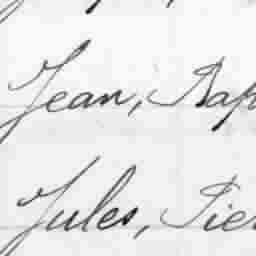 Jean, Bap
Jules, Pier